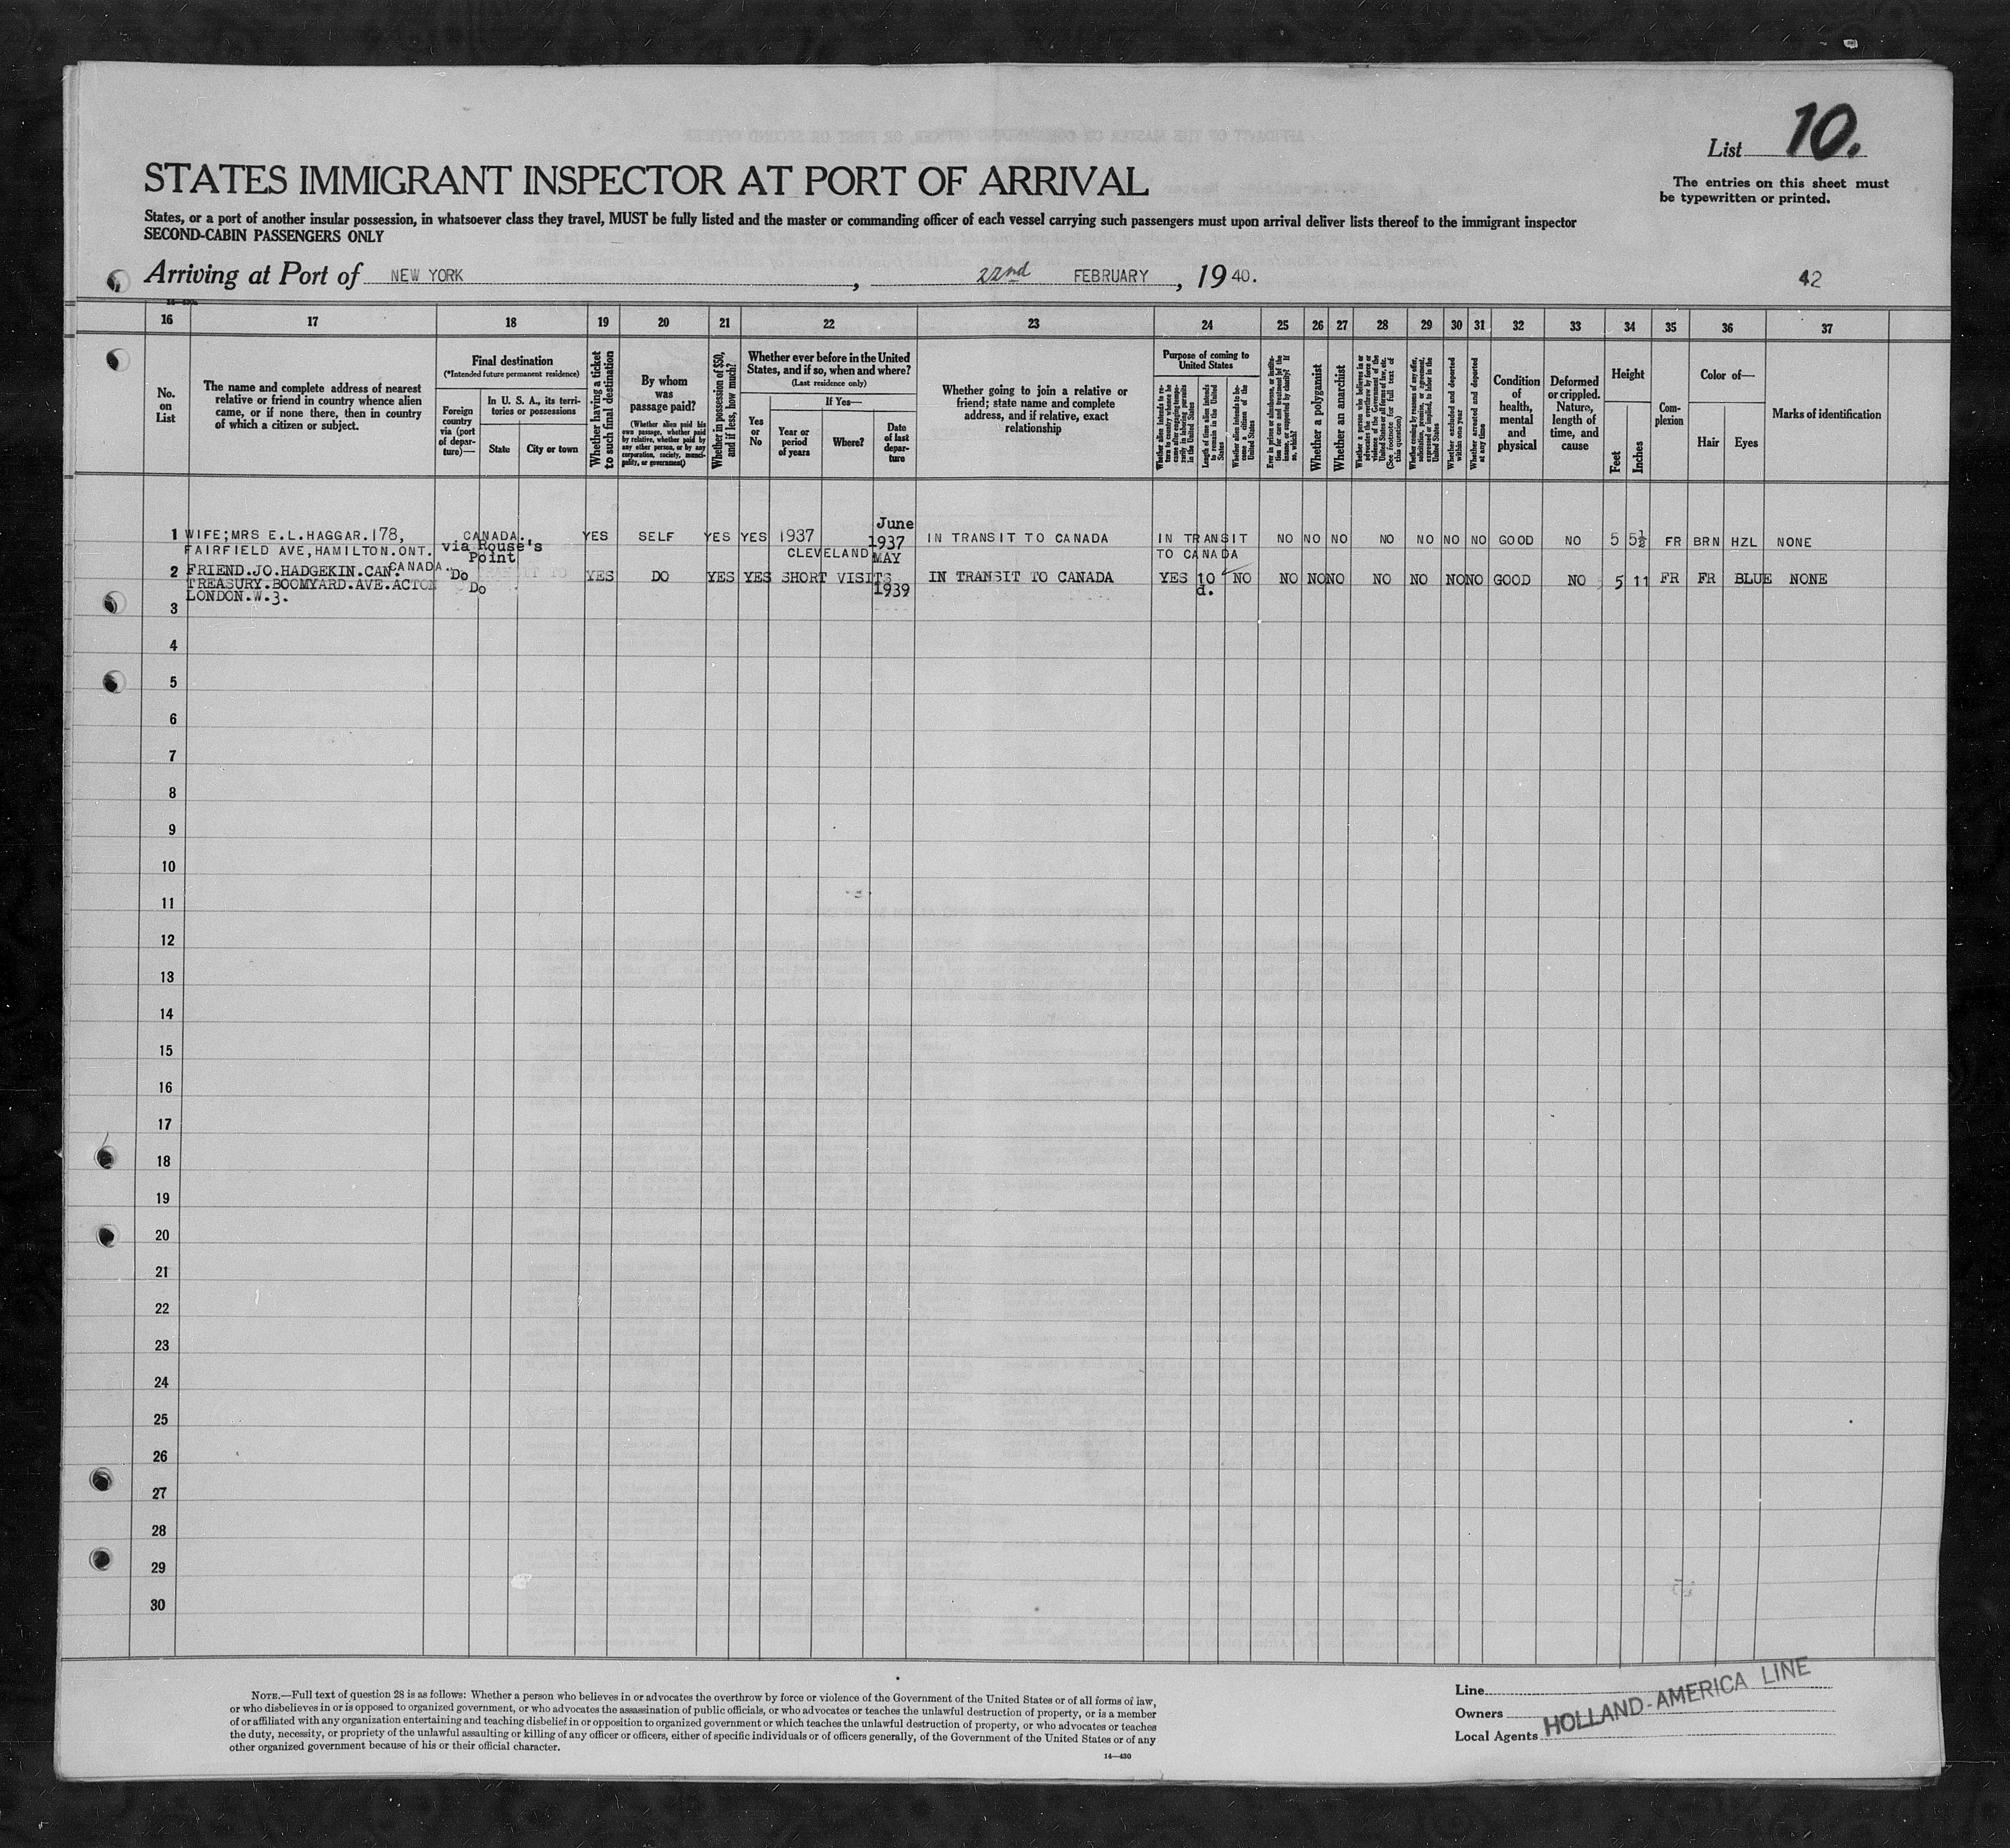 List 10.
The entries on this sheet must
be typewritten or printed.
STATES IMMIGRANT INSPECTOR AT PORT OF ARRIVAL
States, or a port of another insular possession, in whatsoever class they travel, MUST be fully listed and the master or commanding officer of each vessel carrying such passengers must upon arrival deliver lists thereof to the immigrant inspector
SECOND-CABIN PASSENGERS ONLY
Arriving at Port of NEW YORK, 22nd FEBRUARY, 19 40.
42
16 17 18 19 20 21 22 23 24 25 26 27 28 29 30 31 32 33 34 35 36 37
No.
on
List
The name and complete address of nearest
relative or friend in country whence alien
came, or if none there, then in country
of which a citizen or subject.
Final destination
(*Intended future permanent residence)
Foreign
country
via (port
of depar-
ture)—
In U. S. A., its terri-
tories or possessions
State
City or town
Whether having a ticket
to such final destination
By whom
was
passage paid?
(Whether alien paid his
own passage, whether paid
by relative, whether paid by
any other person, or by any
corporation, society, munici-
pality, or government)
Whether in possession of $50,
and if less, how much?
Whether ever before in the United
States, and if so, when and where?
(Last residence only)
Yes
or
No
If Yes—
Year or
period
of years
Where?
Date
of last
depar-
ture
Whether going to join a relative or
friend; state name and complete
address, and if relative, exact
relationship
Purpose of coming to
United States
Whether alien intends to re-
turn to country whence he
came after engaging tempo-
rarily in laboring pursuits
in the United States
Length of time alien intends
to remain in the United
States
Whether alien intends to be-
come a citizen of the
United States
Ever in prison or almshouse, or institu-
tion for care and treatment of the
insane, or supported by charity? If
so, which?
Whether a polygamist
Whether an anarchist
Whether a person who believes in or
advocates the overthrow by force or
violence of the Government of the
United States or all forms of law, etc.
(See footnote for full text of
this question)
Whether coming by reasons of any offer,
solicitation, promise, or agreement,
expressed or implied, to labor in the
United States
Whether excluded and deported
within one year
Whether arrested and deported
at any time
Condition
of
health,
mental
and
physical
Deformed
or crippled.
Nature,
length of
time, and
cause
Height
Feet
Inches
Com-
plexion
Color of—
Hair
Eyes
Marks of identification
June
1 WIFE;MRS E.L.HAGGAR.178, CANADA. YES SELF YES YES 1937 1937 IN TRANSIT TO CANADA IN TRANSIT NO NO NO NO NO NO NO GOOD NO 5 5½ FR BRN HZL NONE
FAIRFIELD AVE,HAMILTON.ONT. via Rouse's CLEVELAND MAY TO CANADA
CANADA. Point
2 FRIEND.JO.HADGEKIN.CAN. Do YES DO YES YES SHORT VISITS IN TRANSIT TO CANADA YES 10 NO NO NO NO NO NO NO NO GOOD NO 5 11 FR FR BLUE NONE
TREASURY.BOOMYARD.AVE.ACTON Do 1939 d.
LONDON.W.3.
3
4
5
6
7
8
9
10
11
12
13
14
15
16
17
18
19
20
21
22
23
24
25
26
27
28
29
30
NOTE.—Full text of question 28 is as follows: Whether a person who believes in or advocates the overthrow by force or violence of the Government of the United States or of all forms of law,
or who disbelieves in or is opposed to organized government, or who advocates the assassination of public officials, or who advocates or teaches the unlawful destruction of property, or is a member
of or affiliated with any organization entertaining and teaching disbelief in or opposition to organized government or which teaches the unlawful destruction of property, or who advocates or teaches
the duty, necessity, or propriety of the unlawful assaulting or killing of any officer or officers, either of specific individuals or of officers generally, of the Government of the United States or of any
other organized government because of his or their official character.
14—430
Line
Owners
Local Agents
HOLLAND-AMERICA LINE